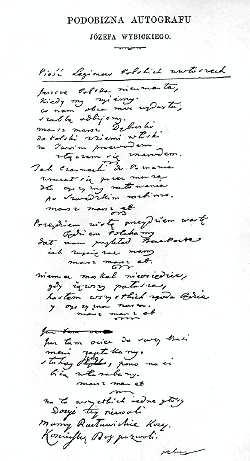 PODOBIZNA AUTOGRAFU
JÓZEFA WYBICKIEGO.
Pieśń Legionów Polskich we Włoszech
Jeszcze Polska nie umarła,
kiedy my żyjemy
co nam obca moc wydarła,
szablą odbijemy.
marsz marsz Dąbrowski
do Polski z ziemi włoski
za Twoim przewodem
złączem się z narodem.
Jak Czarnecki do Poznania
wracał się przez morze
dla ojczyzny ratowania
po szwedzkim rozbiorze.
marsz marsz et
Przejdziem Wisłę przejdziem Wartę
będziem Polakami
dał nam przykład Bonaparte
jak zwyciężać mamy
marsz marsz et
niemiec moskal nie osiędzie,
gdy jąwszy pałasza,
hasłem wszystkich zgoda będzie
y ojczyzna nasza
marsz marsz et
Już tam ociec do swej Basi
mówi zapłakany
słuchaj, pono nasi
biją w tarabany
marsz marsz et
na to wszystkich jedne głosy
Dosyć tej niewoli
Mamy Racławickie Kosy
Kościuszkę Bóg pozwoli.